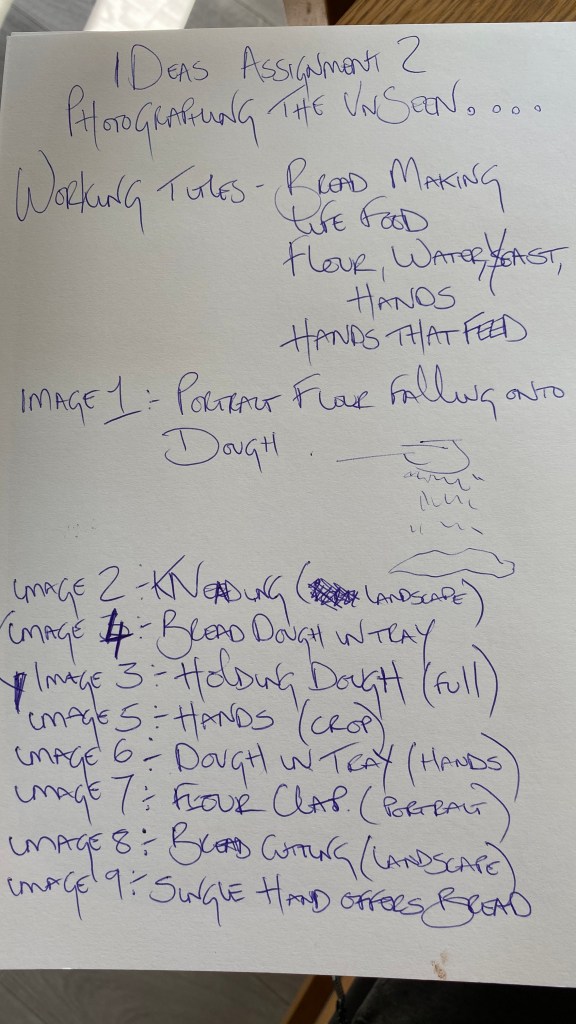 IDEAS ASSIGNMENT 2
PHOTOGRAPHING THE UNSEEN....
WORKING TITLES - BREAD MAKING
LIFE FOOD
FLOUR, WATER, YEAST,
HANDS
HANDS THAT FEED
IMAGE 1:- PORTRAIT FLOUR FALLING ONTO
DOUGH.
IMAGE 2:- KNEADING (LANDSCAPE)
IMAGE 4:- BREAD DOUGH IN TRAY
IMAGE 3:- HOLDING DOUGH (FULL)
IMAGE 5:- HANDS (CROP)
IMAGE 6:- DOUGH IN TRAY (HANDS)
IMAGE 7:- FLOUR CLAP. (PORTRAIT)
IMAGE 8:- BREAD CUTTING (LANDSCAPE)
IMAGE 9:- SINGLE HAND OFFERS BREAD